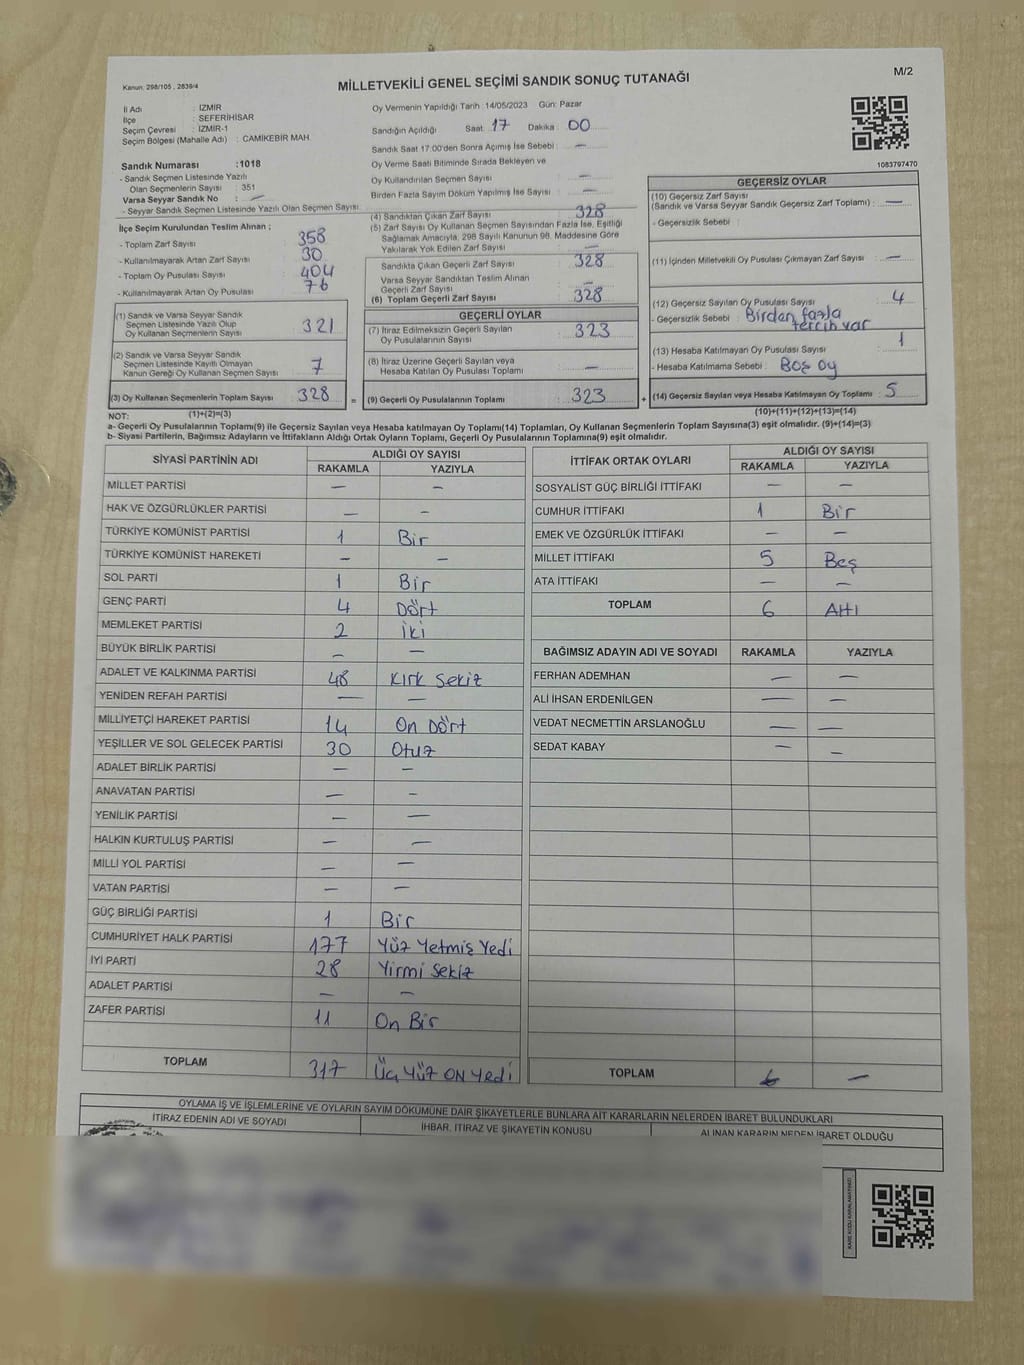 Kanun: 298/105 , 2839/4
MİLLETVEKİLİ GENEL SEÇİMİ SANDIK SONUÇ TUTANAĞI
M/2
İl Adı : İZMİR
İlçe : SEFERİHİSAR
Seçim Çevresi : İZMİR-1
Seçim Bölgesi (Mahalle Adı) : CAMİKEBİR MAH.
Sandık Numarası :1018
- Sandık Seçmen Listesinde Yazılı
Olan Seçmenlerin Sayısı : 351
Varsa Seyyar Sandık No : —
- Seyyar Sandık Seçmen Listesinde Yazılı Olan Seçmen Sayısı:
İlçe Seçim Kurulundan Teslim Alınan ;
- Toplam Zarf Sayısı : 358
- Kullanılmayarak Artan Zarf Sayısı : 30
- Toplam Oy Pusulası Sayısı : 404
- Kullanılmayarak Artan Oy Pusulası : 76
(1) Sandık ve Varsa Seyyar Sandık
Seçmen Listesinde Yazılı Olup
Oy Kullanan Seçmenlerin Sayısı : 321
(2) Sandık ve Varsa Seyyar Sandık
Seçmen Listesinde Kayıtlı Olmayan
Kanun Gereği Oy Kullanan Seçmen Sayısı : 7
(3) Oy Kullanan Seçmenlerin Toplam Sayısı : 328 =
Oy Vermenin Yapıldığı Tarih :14/05/2023 Gün: Pazar
Sandığın Açıldığı Saat: 17 Dakika: 00
Sandık Saat 17:00'den Sonra Açımış İse Sebebi : —
Oy Verme Saati Bitiminde Sırada Bekleyen ve
Oy Kullandırılan Seçmen Sayısı : —
Birden Fazla Sayım Döküm Yapılmış İse Sayısı : —
(4) Sandıktan Çıkan Zarf Sayısı : 328
(5) Zarf Sayısı Oy Kullanan Seçmen Sayısından Fazla İse, Eşitliği
Sağlamak Amacıyla, 298 Sayılı Kanunun 98. Maddesine Göre
Yakılarak Yok Edilen Zarf Sayısı : —
Sandıkta Çıkan Geçerli Zarf Sayısı : 328
Varsa Seyyar Sandıktan Teslim Alınan
Geçerli Zarf Sayısı : —
(6) Toplam Geçerli Zarf Sayısı : 328
GEÇERLİ OYLAR
(7) İtiraz Edilmeksizin Geçerli Sayılan
Oy Pusulalarının Sayısı : 323
(8) İtiraz Üzerine Geçerli Sayılan veya
Hesaba Katılan Oy Pusulası Toplamı : —
(9) Geçerli Oy Pusulalarının Toplamı : 323 +
1083797470
GEÇERSİZ OYLAR
(10) Geçersiz Zarf Sayısı
(Sandık ve Varsa Seyyar Sandık Geçersiz Zarf Toplamı) : —
- Geçersizlik Sebebi :
(11) İçinden Milletvekili Oy Pusulası Çıkmayan Zarf Sayısı : —
(12) Geçersiz Sayılan Oy Pusulası Sayısı : 4
- Geçersizlik Sebebi : Birden fazla
tercih var
(13) Hesaba Katılmayan Oy Pusulası Sayısı : 1
- Hesaba Katılmama Sebebi : Boş oy
(14) Geçersiz Sayılan veya Hesaba Katılmayan Oy Toplamı : 5
NOT: (1)+(2)=(3) (10)+(11)+(12)+(13)=(14)
a- Geçerli Oy Pusulalarının Toplamı(9) ile Geçersiz Sayılan veya Hesaba katılmayan Oy Toplamı(14) Toplamları, Oy Kullanan Seçmenlerin Toplam Sayısına(3) eşit olmalıdır. (9)+(14)=(3)
b- Siyasi Partilerin, Bağımsız Adayların ve İttifakların Aldığı Ortak Oyların Toplamı, Geçerli Oy Pusulalarının Toplamına(9) eşit olmalıdır.
SİYASİ PARTİNİN ADI ALDIĞI OY SAYISI
RAKAMLA YAZIYLA
MİLLET PARTİSİ — —
HAK VE ÖZGÜRLÜKLER PARTİSİ — —
TÜRKİYE KOMÜNİST PARTİSİ 1 Bir
TÜRKİYE KOMÜNİST HAREKETİ — —
SOL PARTİ 1 Bir
GENÇ PARTİ 4 Dört
MEMLEKET PARTİSİ 2 İki
BÜYÜK BİRLİK PARTİSİ — —
ADALET VE KALKINMA PARTİSİ 48 Kırk Sekiz
YENİDEN REFAH PARTİSİ — —
MİLLİYETÇİ HAREKET PARTİSİ 14 On Dört
YEŞİLLER VE SOL GELECEK PARTİSİ 30 Otuz
ADALET BİRLİK PARTİSİ — —
ANAVATAN PARTİSİ — —
YENİLİK PARTİSİ — —
HALKIN KURTULUŞ PARTİSİ — —
MİLLİ YOL PARTİSİ — —
VATAN PARTİSİ — —
GÜÇ BİRLİĞİ PARTİSİ 1 Bir
CUMHURİYET HALK PARTİSİ 177 Yüz Yetmiş Yedi
İYİ PARTİ 28 Yirmi Sekiz
ADALET PARTİSİ — —
ZAFER PARTİSİ 11 On Bir
TOPLAM 317 Üç Yüz ON Yedi
İTTİFAK ORTAK OYLARI ALDIĞI OY SAYISI
RAKAMLA YAZIYLA
SOSYALİST GÜÇ BİRLİĞİ İTTİFAKI — —
CUMHUR İTTİFAKI 1 Bir
EMEK VE ÖZGÜRLÜK İTTİFAKI — —
MİLLET İTTİFAKI 5 Beş
ATA İTTİFAKI — —
TOPLAM 6 Altı
BAĞIMSIZ ADAYIN ADI VE SOYADI RAKAMLA YAZIYLA
FERHAN ADEMHAN — —
ALİ İHSAN ERDENİLGEN — —
VEDAT NECMETTİN ARSLANOĞLU — —
SEDAT KABAY — —
TOPLAM 6 —
OYLAMA İŞ VE İŞLEMLERİNE VE OYLARIN SAYIM DÖKÜMÜNE DAİR ŞİKAYETLERLE BUNLARA AİT KARARLARIN NELERDEN İBARET BULUNDUKLARI
İTİRAZ EDENİN ADI VE SOYADI İHBAR, İTİRAZ VE ŞİKAYETİN KONUSU ALINAN KARARIN NEDEN İBARET OLDUĞU
KARE KODU KARALAMAYINIZ!